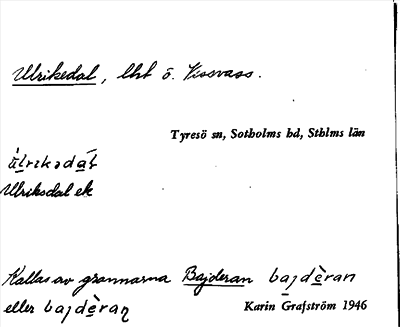 Ulrikedal, lht ö. Vissvass.
Tyresö sn, Sotholms hd, Sthlms län
ùlrikədàl
Ulriksdal ek
Kallas av grannarna Bajderan bajdèran
eller bajdèraɳ
Karin Grafström 1946